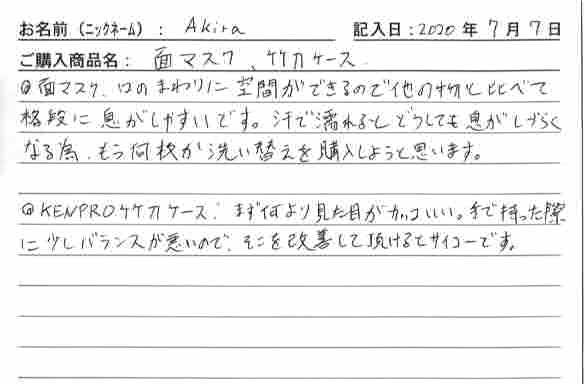 お名前（ニックネーム）： Akira 記入日：2020 年 7 月 7 日
ご購入商品名： 面マスク、竹刀ケース
◎面マスク、口のまわりに空間ができるので他の物と比べて
格段に息がしやすいです。汗で濡れるとどうしても息がしづらく
なる為、もう何枚か洗い替えを購入しようと思います。
◎KENPRO竹刀ケース：まず何より見た目がカッコいい。手で持った際
に少しバランスが悪いので、そこを改善して頂けるとサイコーです。